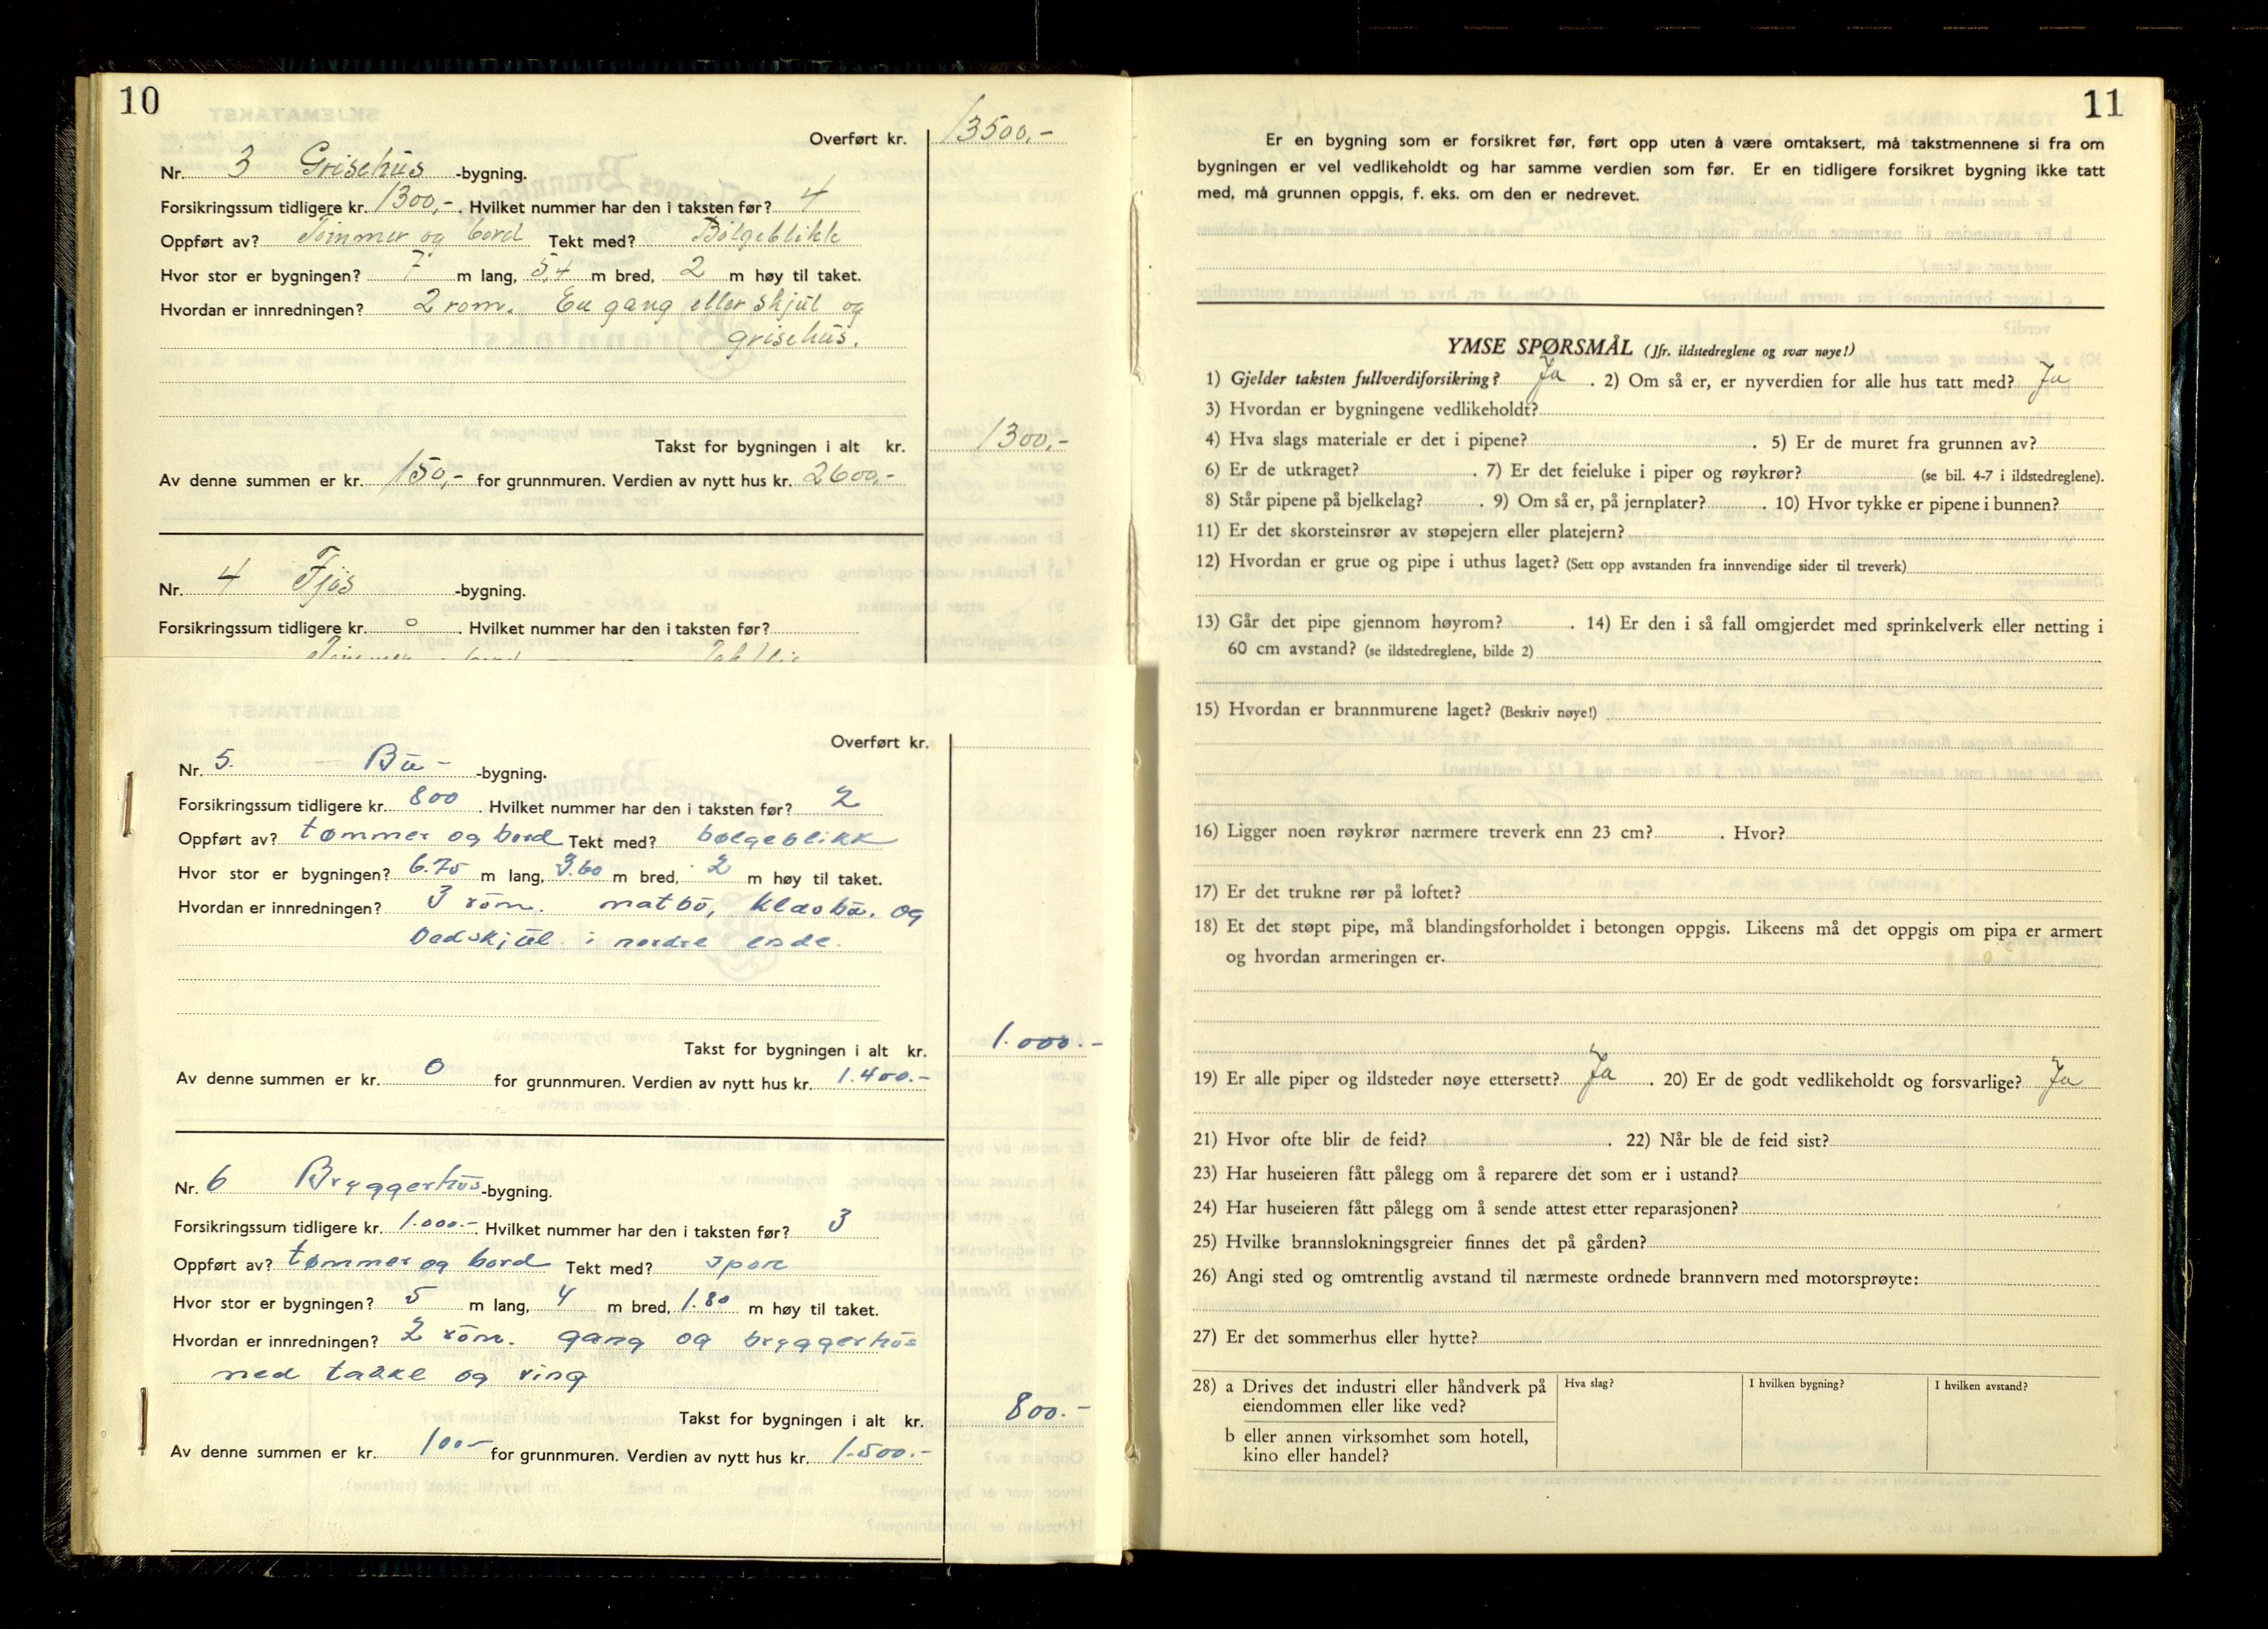 10
Overført kr. 13500,-
Nr. 3 Grisehus -bygning.
Forsikringssum tidligere kr. 1300,-. Hvilket nummer har den i taksten før? 4
Oppført av? Tømmer og bord Tekt med? Bølgeblikk
Hvor stor er bygningen? 7 m lang, 5,4 m bred, 2 m høy til taket.
Hvordan er innredningen? 2 rom. En gang eller skjul og
grisehus.
Takst for bygningen i alt kr. 1300,-
Av denne summen er kr. 150,- for grunnmuren. Verdien av nytt hus kr. 2600,-
Nr. 4 Fjøs -bygning.
Forsikringssum tidligere kr. 0. Hvilket nummer har den i taksten før?
Overført kr.
Nr. 5. Bu- -bygning.
Forsikringssum tidligere kr. 800. Hvilket nummer har den i taksten før? 2
Oppført av? tømmer og bord Tekt med? bølgeblikk
Hvor stor er bygningen? 6.75 m lang, 3.60 m bred, 2 m høy til taket.
Hvordan er innredningen? 3 rom. matbu, klesbu. og
vedskjul i nordre ende.
Takst for bygningen i alt kr. 1.000.-
Av denne summen er kr. 0 for grunnmuren. Verdien av nytt hus kr. 1.400.-
Nr. 6 Bryggerhus -bygning.
Forsikringssum tidligere kr. 1.000.-. Hvilket nummer har den i taksten før? 3
Oppført av? tømmer og bord Tekt med? spon
Hvor stor er bygningen? 5 m lang, 4 m bred, 1.80 m høy til taket.
Hvordan er innredningen? 2 rom. gang og bryggerhus
med takke og ring
Takst for bygningen i alt kr. 800.-
Av denne summen er kr. 100- for grunnmuren. Verdien av nytt hus kr. 1.500.-
11
Er en bygning som er forsikret før, ført opp uten å være omtaksert, må takstmennene si fra om
bygningen er vel vedlikeholdt og har samme verdien som før. Er en tidligere forsikret bygning ikke tatt
med, må grunnen oppgis, f. eks. om den er nedrevet.
YMSE SPØRSMÅL (Jfr. ildstedreglene og svar nøye!)
1) Gjelder taksten fullverdiforsikring? Ja. 2) Om så er, er nyverdien for alle hus tatt med? Ja
3) Hvordan er bygningene vedlikeholdt?
4) Hva slags materiale er det i pipene?. 5) Er de muret fra grunnen av?
6) Er de utkraget?. 7) Er det feieluke i piper og røykrør? (se bil. 4-7 i ildstedreglene).
8) Står pipene på bjelkelag?. 9) Om så er, på jernplater?. 10) Hvor tykke er pipene i bunnen?
11) Er det skorsteinsrør av støpejern eller platejern?
12) Hvordan er grue og pipe i uthus laget? (Sett opp avstanden fra innvendige sider til treverk)
13) Går det pipe gjennom høyrom?. 14) Er den i så fall omgjerdet med sprinkelverk eller netting i
60 cm avstand? (se ildstedreglene, bilde 2)
15) Hvordan er brannmurene laget? (Beskriv nøye!)
16) Ligger noen røykrør nærmere treverk enn 23 cm?. Hvor?
17) Er det trukne rør på loftet?
18) Et det støpt pipe, må blandingsforholdet i betongen oppgis. Likeens må det oppgis om pipa er armert
og hvordan armeringen er.
19) Er alle piper og ildsteder nøye ettersett? Ja. 20) Er de godt vedlikeholdt og forsvarlige? Ja
21) Hvor ofte blir de feid?. 22) Når ble de feid sist?
23) Har huseieren fått pålegg om å reparere det som er i ustand?
24) Har huseieren fått pålegg om å sende attest etter reparasjonen?
25) Hvilke brannslokningsgreier finnes det på gården?
26) Angi sted og omtrentlig avstand til nærmeste ordnede brannvern med motorsprøyte:
27) Er det sommerhus eller hytte?
28) a Drives det industri eller håndverk på Hva slag? I hvilken bygning? I hvilken avstand?
eiendommen eller like ved?
b eller annen virksomhet som hotell,
kino eller handel?